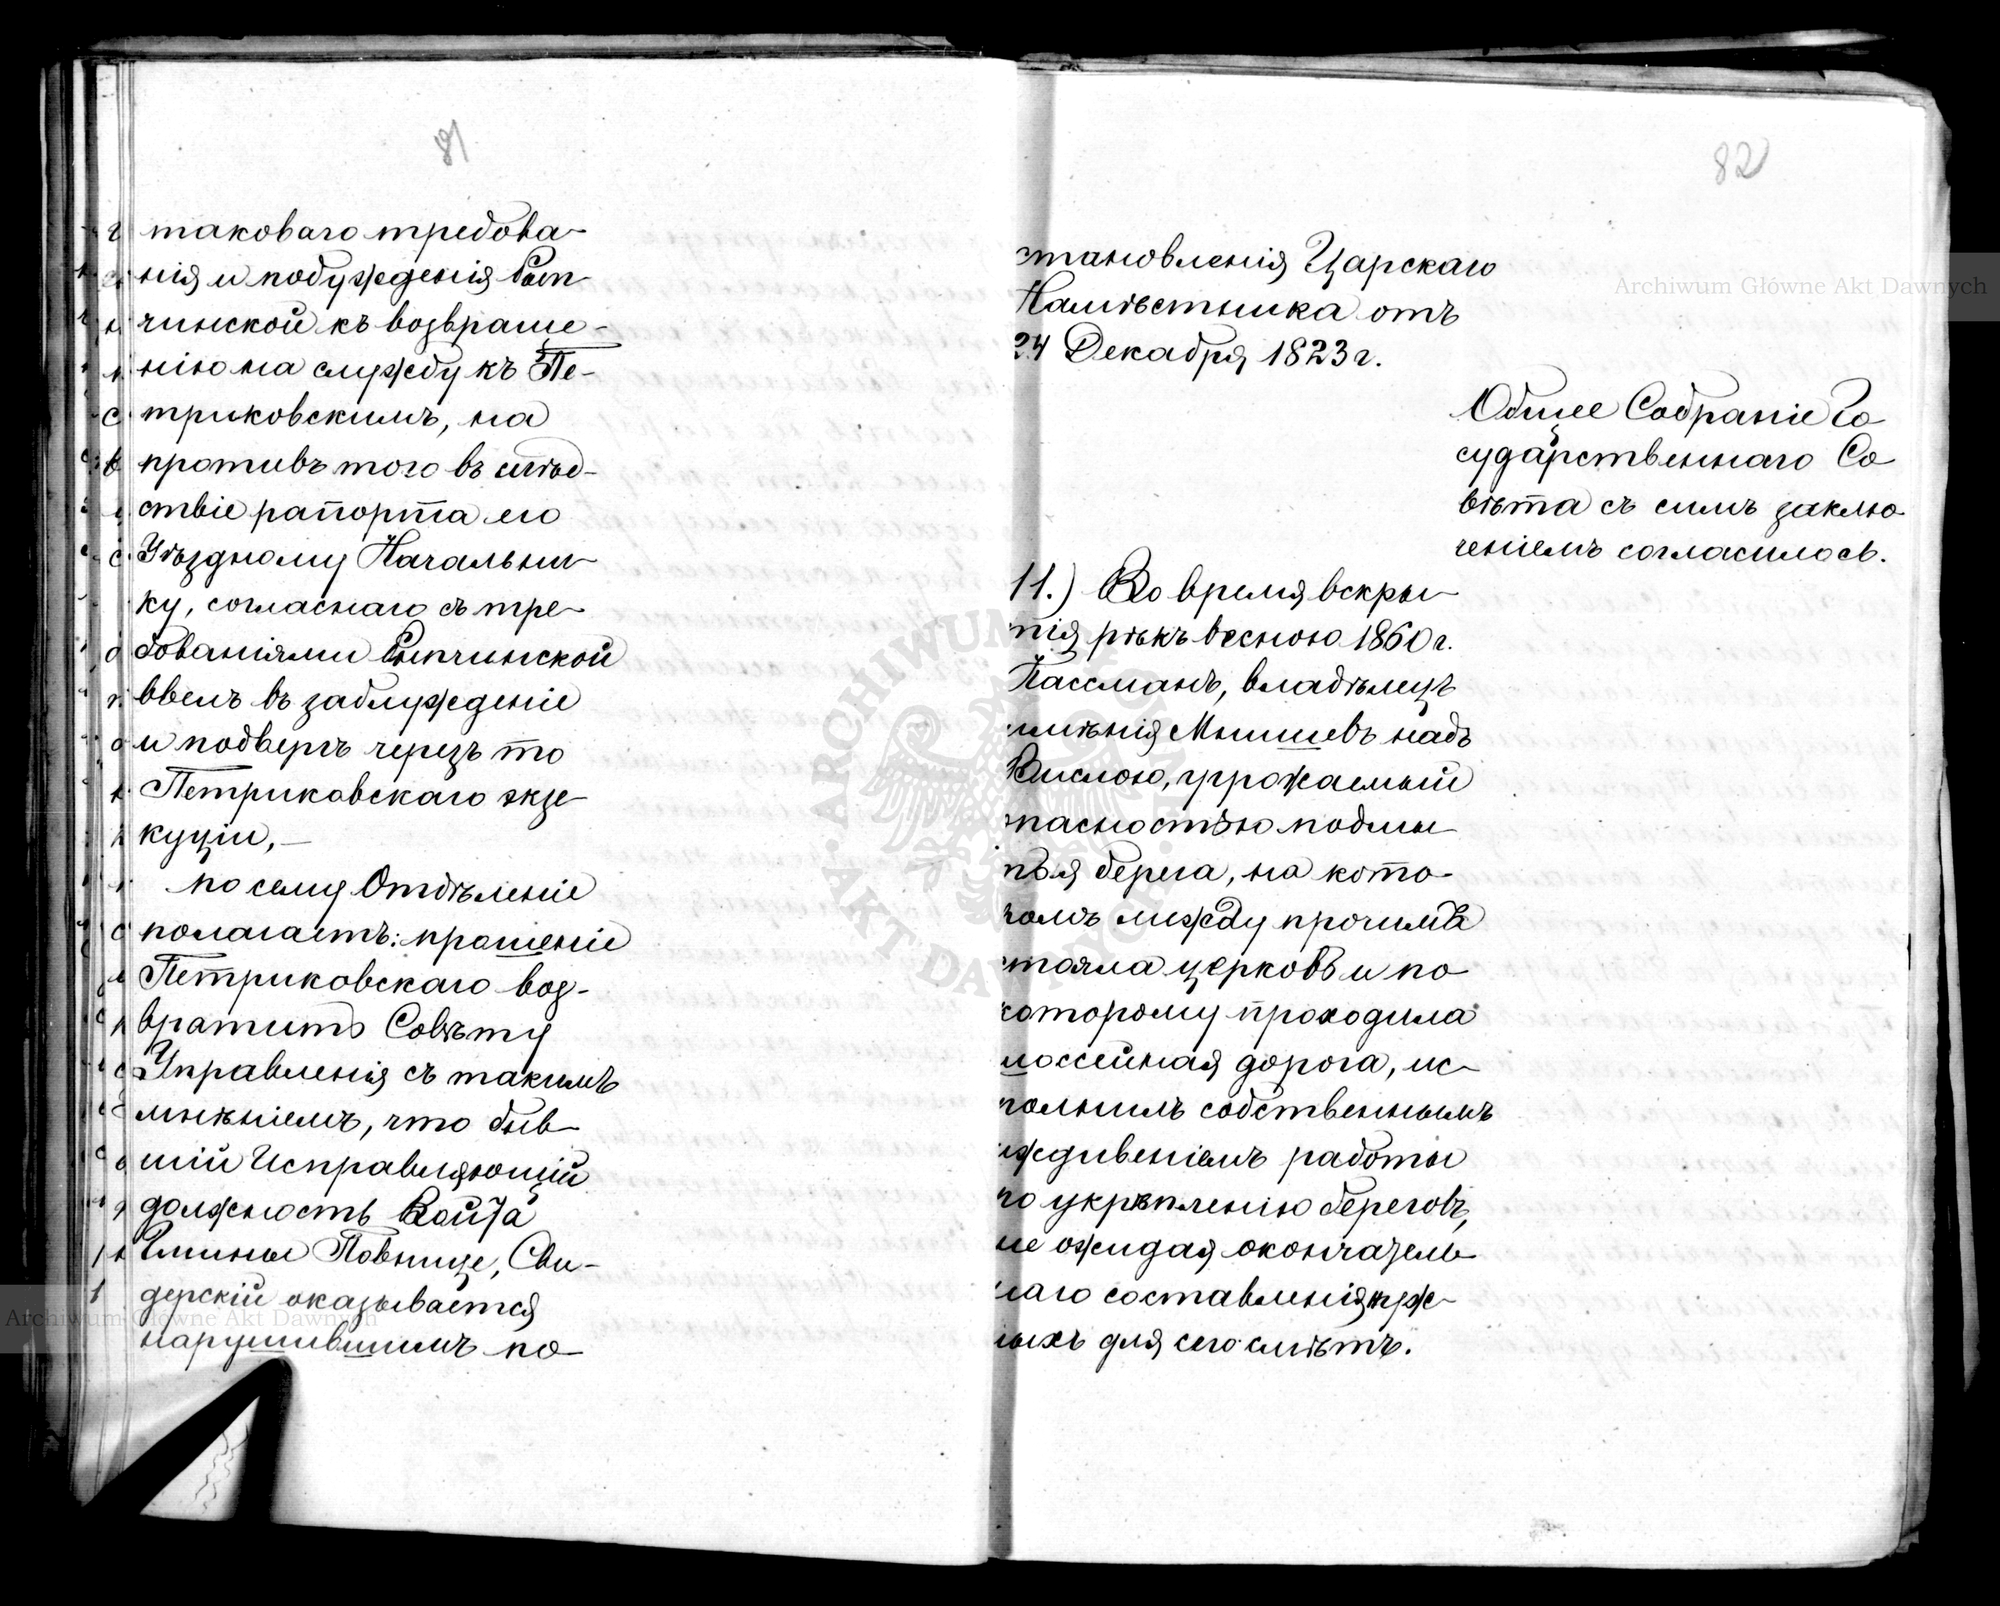 81
таковаго требова-
нія и побужденія Рып-
чинской къ возвраще-
нію на службу къ Пе-
триковскимъ, на
противъ того въ слѣд-
ствіе рапорта его
Уѣздному Начальни-
ку, согласнаго съ тре-
бованіями Рыпчинской
ввелъ въ заблужденіе
и подвергъ черезъ то
Петриковскаго экзе-
куціи,—
по сему Отдѣленіе
полагаетъ: прошеніе
Петриковскаго воз-
вратить Совѣту
Управленія съ такимъ
мнѣніемъ, что быв-
шій Исправляющій
должность Войта
Гмины Повница, Сви-
дерскій оказывается
нарушившимъ по-
82
становленія Царскаго
Намѣстника отъ
24 Декабря 1823 г.
Общее Собраніе Го
сударственнаго Со
вѣта съ симъ заклю
ченіемъ согласилось.
11.) Во время вскры-
тія рѣкъ весною 1860 г.
Пассманъ, владѣлецъ
имѣнія Мнишевъ надъ
Вислою, угрожаемый
опасностью подмы-
тья берега, на кото-
ромъ между прочимъ
стояла церковь и по
которому проходила
шоссейная дорога, ис-
полнилъ собственнымъ
иждивеніемъ работы
по укрѣпленію береговъ,
не ожидая окончатель-
наго составленія нуж-
ныхъ для сего смѣтъ.
Archiwum Główne Akt Dawnych
Archiwum Główne Akt Dawnych
ARCHIWUM GŁÓWNE
AKT DAWNYCH